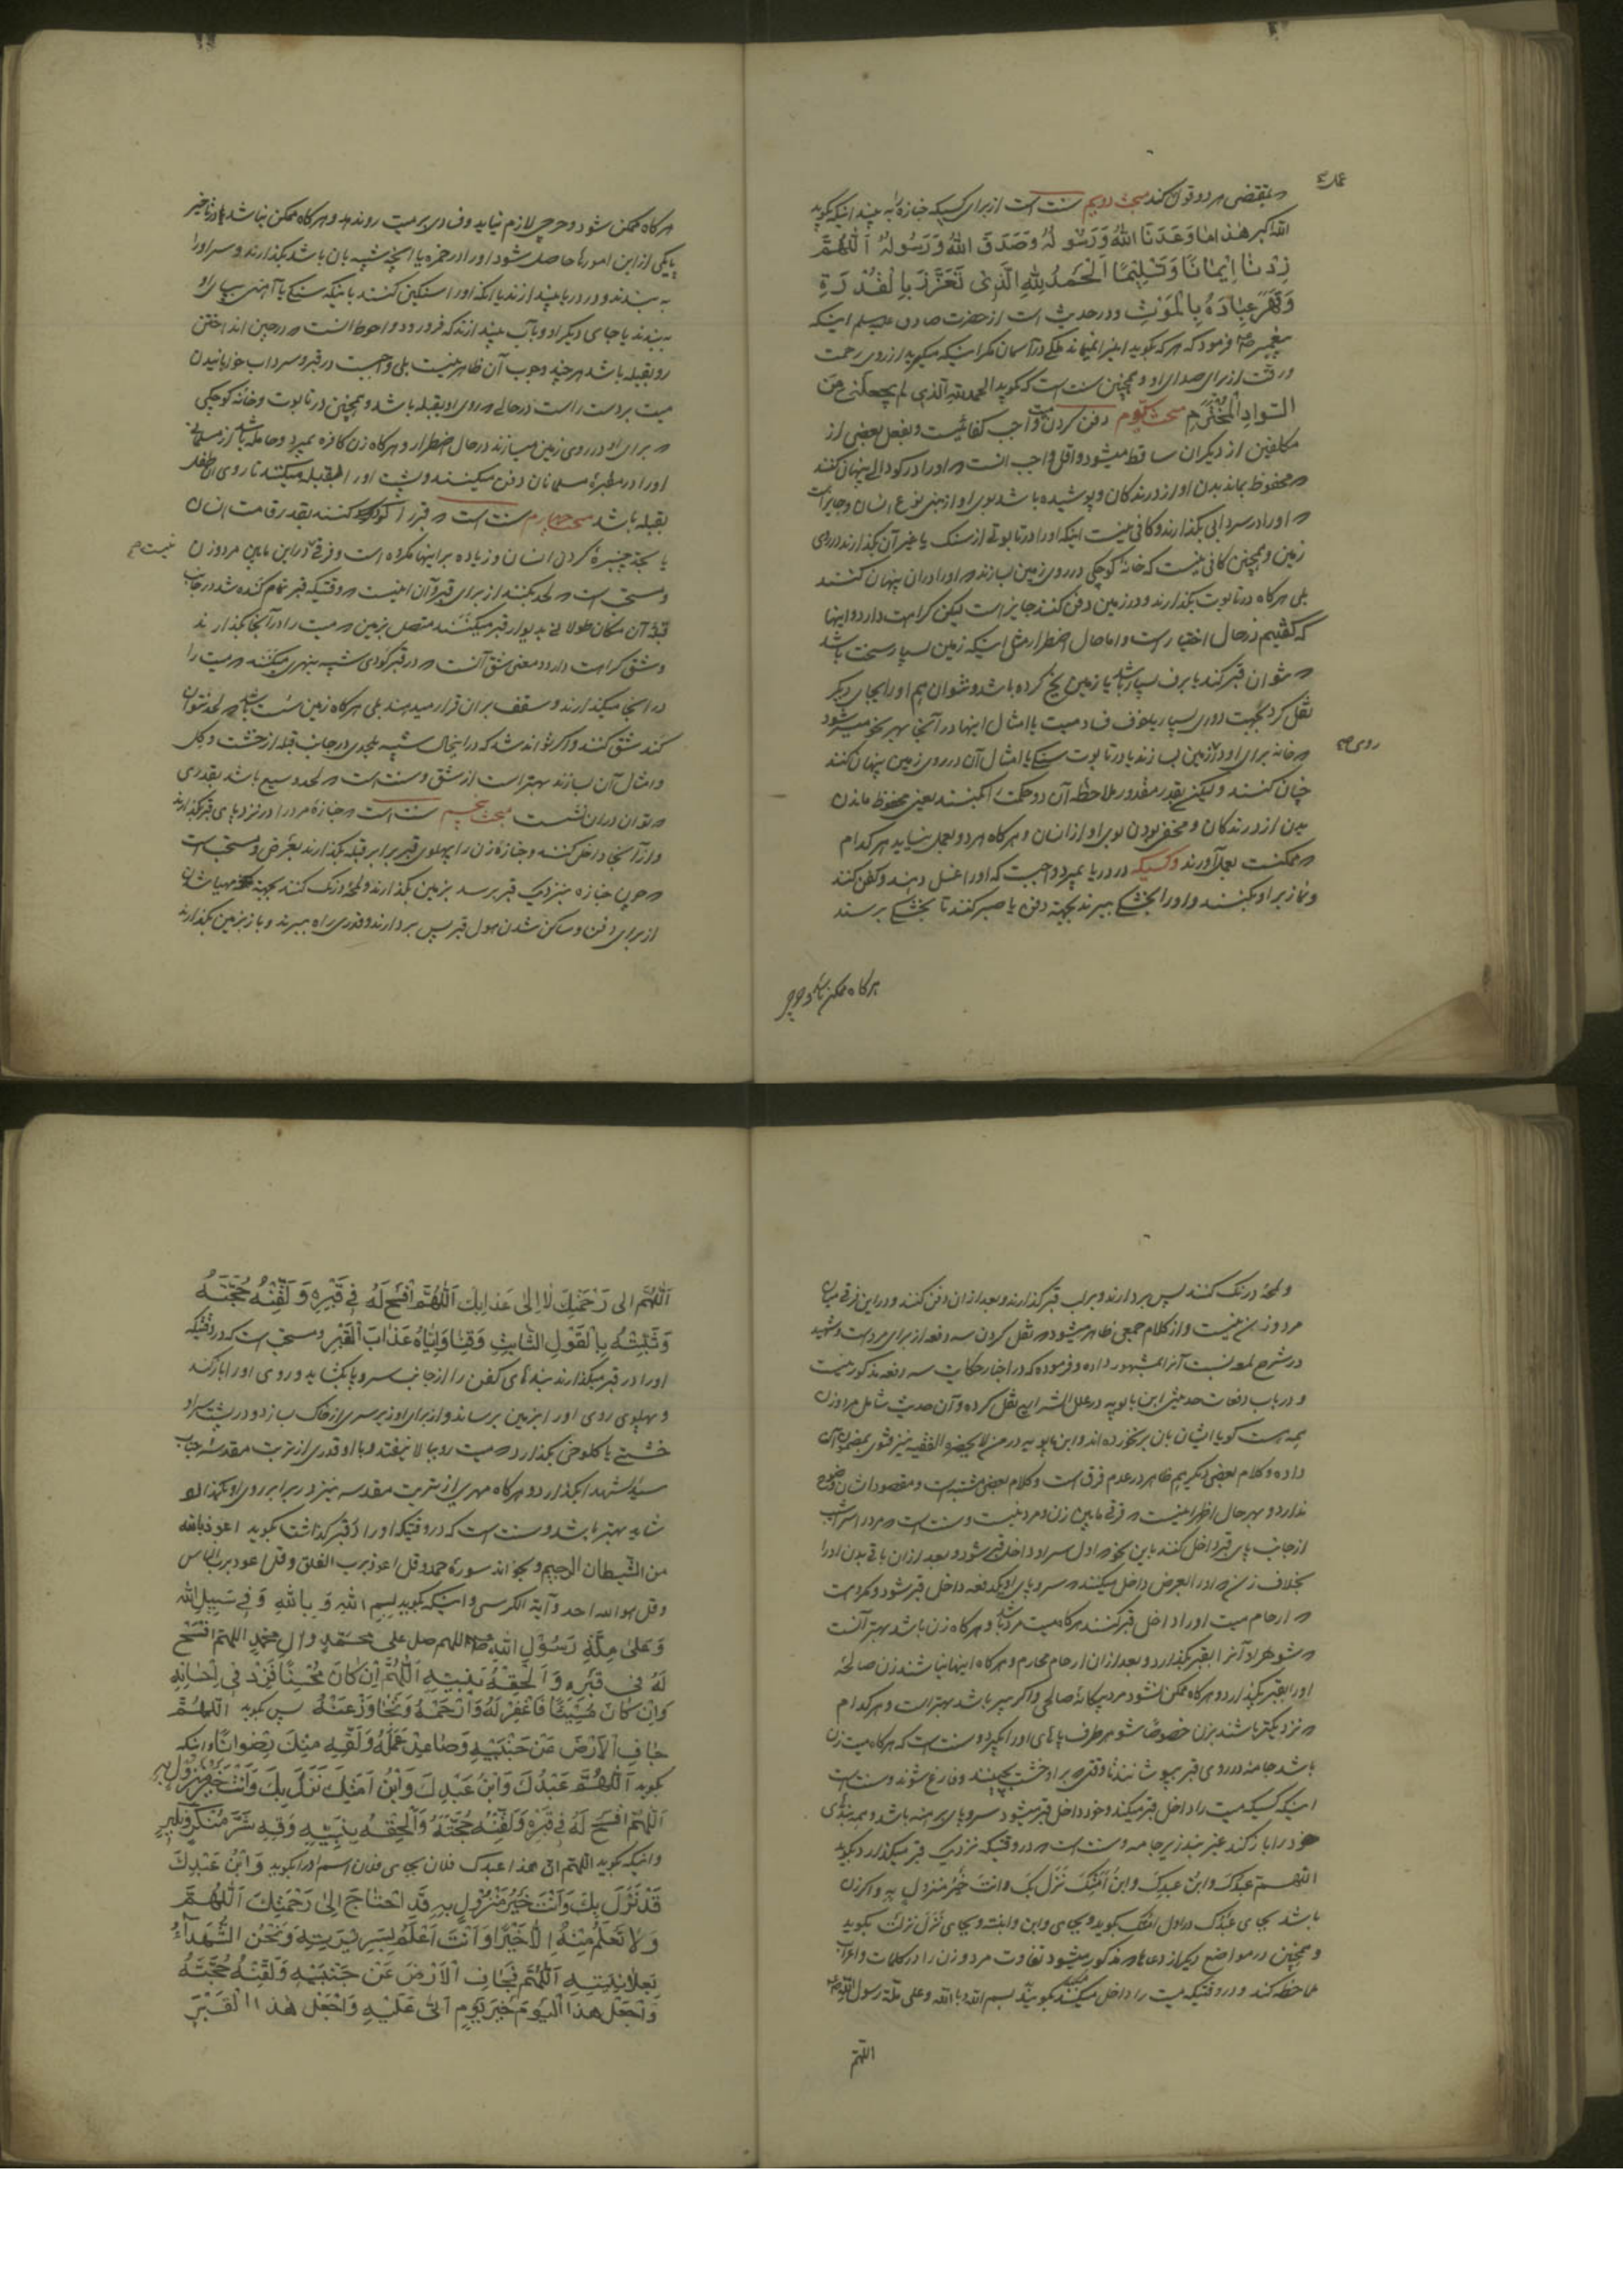 عمل
بمقتضی هر دو قول کند مبحث دویم سنت است از برای کسیکه جنازهٔ به بیند اینکه بگوید
الله اکبر هٰذا ما وَعَدَنَا اللهُ وَرَسُولُهُ وَصَدَقَ اللهُ وَرَسُولُهُ اَللّٰهُمَّ
زِدْنا اِیمٰانًا وَتَسْلِیمًا اَلْحَمْدُ لِلّٰهِ الَّذِی تَعَزَّزَ بِالْقُدْرَةِ
وَقَهَرَ عِبٰادَهُ بِالْمَوْتِ ودر حدیث است از حضرت صادق علیه‌السلم اینکه
پیغمبر ص فرمود که هر که بگوید اینرا نمیماند ملکی در آسمان مگر اینکه میگرید از روی رحمت
ورقت از برای صدای او و همچنین سنت است که بگوید الحمد لله الذی لم یجعلنی من
السَّوادِ الْمُخْتَرَم مبحث سیوم دفن کردن میت واجب کفائیست وبفعل بعضی از
مکلفین از دیگران ساقط میشود واقل واجب آنست که او را در گودالی پنهان کنند
که محفوظ بماند بدن او از درندگان وپوشیده باشد بوی او از بنی نوع انسان وجایز است
که او را در سردابی بگذارند وکافی نیست اینکه او را در تابوتی از سنک یا غیر آن بگذارند در روی
زمین وهمچنین کافی نیست که خانهٔ کوچکی در روی زمین بسازند که او را در ان پنهان کنند
بلی هرگاه در تابوت بگذارند ودر زمین دفن کنند جایز است لیکن کراهت دارد واینها
که گفتیم در حال اختیار است واما حال اضطرار مثل اینکه زمین بسیار سخت باشد
که نتوان قبر کند یا برف بسیار باشد یا زمین یخ کرده باشد ونتوان هم او را بجای دیگر
نقل کرد بجهت دوری بسیار یا خوف فساد میت یا امثال اینها در آنجا بهر نحو میسر شود
روی صح
که خانه برای او در زمین بسازند یا در تابوت سنگی یا امثال آن در روی زمین پنهان کنند
چنان کنند ولیکن بقدر مقدور ملاحظه آن دو حکمت را بکنند یعنی محفوظ ماندن
بدن از درندگان ومخفی بودن بوی او از انسان وهرگاه هر دو بعمل نیاید هر کدام
که ممکنست بعمل آورند وکسیکه در دریا بمیرد واجبست که او را غسل دهند وکفن کنند
ونماز بر او بکنند واو را بخشکی ببرند بجهة دفن یا صبر کنند تا بخشکی برسند
هرگاه ممکن باشد وحرجی
هرگاه ممکن شود وحرجی لازم نیاید وفسادی بر میت روندهد وهرگاه ممکن نباشد یا در تأخیر
یکی از این امورها حاصل شود او را در خمره یا آنچه شبیه بان باشد بگذارند وسر او را
به بندند ودر دریا بیندازند یا انکه او را سنگین کنند باینکه سنگی یا آهنی بپای او
به بندند یا جای دیگر او وبآب بیندازند که فرو رود واحوط انست که در حین انداختن
رو بقبله باشد هر چند وجوب آن ظاهر نیست بلی واجبست در قبر وسرداب خوابانیدن
میت بر دست راست در حالی که روی او بقبله باشد وهمچنین در تابوت وخانه کوچکی
که برای او در روی زمین میسازند در حال اضطرار وهرگاه زن کافره بمیرد وحامله باشد از مسلمانی
او را در مقبرهٔ مسلمانان دفن میکنند وپشت او را بقبله میکنند تا روی طفل
بقبله باشد مبحث چهارم سنت است که قبر را گود کنند بقدر قامت انسان
یا تا چنبرهٔ گردن انسان وزیاده بر اینها مکروه است وفرقی در این مابین مرد وزن نیست صح
ومستحب است که لحد بکنند از برای قبر وآن اینست که وقتیکه قبر تمام کنده شد در جانب
قبله آن مکان طولانی بدیوار قبر میکنند متصل بزمین که میت را در آنجا بگذارند
وشق کراهت دارد ومعنی شق آنست که در قبر گودی شبیه بنهری میکنند که میت را
در انجا میگذارند وسقف بر ان قرار میدهند بلی هرگاه زمین سست باشد که لحد نتوان
کند شق کنند واگر تواند شد که در اینحال شبیه بلحدی در جانب قبله از خشت وگل
وامثال آن بسازند بهتر است از شق وسنت است که لحد وسیع باشد بقدری
که توان در ان نشست مبحث پنجم سنت است که جنازهٔ مرد را در نزد پای قبر گذارند
واز آنجا داخل کنند وجنازهٔ زن را پهلوی قبر برابر قبله بگذارند بعرض ومستحب است
که چون جنازه بنزدیک قبر برسد بزمین بگذارند ولمحهٔ درنگ کنند بجهة مهیا شدن
از برای دفن وساکن شدن هول قبر پس بردارند وقدری راه ببرند وباز بزمین بگذارند
ولمحهٔ درنک کنند پس بردارند وبر لب قبر گذارند وبعد از ان دفن کنند ودر این فرقی میان
مرد وزن نیست واز کلام جمعی ظاهر میشود که نقل کردن سه دفعه از برای مرد است وشهید
در شرح لمعه نسبت آنرا بمشهور داده وفرموده که در اخبار حکایت سه دفعه مذکور نیست
ودر باب دفعات حدیثی ابن بابویه در علل الشرایع نقل کرده وآن حدیث شامل مرد وزن
همه هست گویا ایشان بان برنخورده اند وابن بابویه در من لا یحضره الفقیه نیز فتوی بمضمون آن
داده وکلام بعضی دیگر هم ظاهر در عدم فرق است وکلام بعضی مشتبه است ومقصود ایشان وضوح
ندارد وبهر حال اظهر اینست که فرقی مابین زن ومرد نیست وسنت است که مرد را از سر
از جانب پای قبر داخل کنند باین نحو که اول سر او داخل قبر شود وبعد از ان باقی بدن او را
بخلاف زن که او را بعرض داخل میکنند که سر وپای او یکدفعه داخل قبر شود ومکروه است
که ارحام میت او را داخل قبر کنند هرگاه میت مرد باشد وهرگاه زن باشد بهتر آنست
که شوهر او آنرا بقبر بگذارد وبعد از ان ارحام محارم وهرگاه اینها نباشند زن صالحهٔ
او را بقبر بگذارد وهرگاه ممکن نشود مرد بیگانهٔ صالحی واگر پیر باشد بهتر است وهر کدام
که نزدیکتر باشند بزن خصوصًا شوهر طرف پاهای او را بگیرد وسنت است که هرگاه میت زن
باشد جامهٔ در روی قبر بپوشانند تا وقتی که بر او خشت بچینند وفارغ شوند وسنت است
اینکه کسیکه میت را داخل قبر میکند وخود داخل قبر میشود سر وپای برهنه باشد وهمه بندهای
خود را باز کند غیر بند زیر جامه وسنت است که در وقتیکه نزدیک قبر میگذارد بگوید
اللّٰهمّ عبدُکَ وابنُ عبدِکَ وابنُ اَمَتِکَ نَزَلَ بِکَ وانتَ خیرُ منزولٍ به واگر زن
باشد بجای عبدک در اول امتک بگوید وبجای وابن وابنة وبجای نَزَلَ نزلت بگوید
وهمچنین در مواضع دیگر از دعاها که مذکور میشود تفاوت مرد وزن را در کلمات واعراب
ملاحظه کند ودر وقتیکه میت را داخل میکنند بگوید بسم الله وبالله وعلی ملة رسول الله ص
اللهم
اَللّٰهُمَّ اِلی رَحْمَتِکَ لٰا اِلٰی عَذابِکَ اَللّٰهُمَّ افْسَحْ لَهُ فِی قَبْرِهِ وَلَقِّنْهُ حُجَّتَهُ
وَثَبِّتْهُ بِالْقَوْلِ الثّٰابِتِ وَقِنٰا وَاِیّٰاهُ عَذٰابَ الْقَبْرِ ومستحب است که در وقتیکه
او را در قبر میگذارند بندهای کفن را از جانب سر وپا بگشاید وروی او را باز کند
وپهلوی روی او را بزمین برساند واز برای او زیر سری از خاک بسازد ودر پشت سر او
خشتی یا کلوخی بگذارد که میت رو ببالا نیفتد وبا او قدری از تربت مقدسه جناب
سید الشهدا بگذارد وهرگاه مهری از تربت مقدسه نیز در برابر روی او بگذارد
شاید بهتر باشد وسنت است که در وقتیکه او را در قبر گذاشت بگوید اعوذ بالله
من الشیطان الرجیم وبخواند سورهٔ حمد وقل اعوذ برب الفلق وقل اعوذ برب الناس
وقل هو الله احد وآیة الکرسی واینکه بگوید بسم اللهِ وَبِاللهِ وَفِی سَبِیلِ اللهِ
وَعَلیٰ مِلَّةِ رَسُولِ اللهِ ص اللهم صل علی محمّدٍ وآلِ محمدٍ اللهم افْسَحْ
لَهُ فِی قَبْرِهِ وَاَلْحِقْهُ بِنَبِیِّهِ اَللّٰهُمَّ اِنْ کٰانَ مُحْسِنًا فَزِدْ فِی اِحْسٰانِهِ
وَاِنْ کٰانَ مُسِیئًا فَاغْفِرْ لَهُ وَارْحَمْهُ وَتَجٰاوَزْ عَنْهُ پس بگوید اَللّٰهُمَّ
جٰافِ الْاَرْضَ عَنْ جَنْبَیْهِ وَصٰاعِدْ عَمَلَهُ وَلَقِّهِ مِنْکَ رِضْوانًا واینکه
بگوید اَللّٰهُمَّ عَبْدُکَ وَابْنُ عَبْدِکَ وَابْنُ اَمَتِکَ نَزَلَ بِکَ وَاَنْتَ خَیْرُ مَنْزُولٍ بِهِ
اَللّٰهُمَّ افْسَحْ لَهُ فِی قَبْرِهِ وَلَقِّنْهُ حُجَّتَهُ وَاَلْحِقْهُ بِنَبِیِّهِ وَقِهِ شَرَّ مُنْکَرٍ وَنَکِیرٍ
واینکه بگوید اللّٰهم انّ هذا عبدک فلان بجای فلان اسم او را بگوید وَابْنُ عَبْدِکَ
قَدْ نَزَلَ بِکَ وَاَنْتَ خَیْرُ مَنْزُولٍ بِهِ قَدِ احْتٰاجَ اِلیٰ رَحْمَتِکَ اَللّٰهُمَّ
وَلٰا نَعْلَمُ مِنْهُ اِلّٰا خَیْرًا وَاَنْتَ اَعْلَمُ بِسَرِیرَتِهِ وَنَحْنُ الشُّهَدٰاءُ
بِعَلٰانِیَتِهِ اَللّٰهُمَّ فَجٰافِ الْاَرْضَ عَنْ جَنْبَیْهِ وَلَقِّنْهُ حُجَّتَهُ
وَاجْعَلْ هذَا الْیَوْمَ خَیْرَ یَوْمٍ اَتیٰ عَلَیْهِ وَاجْعَلْ هٰذَا الْقَبْرَ